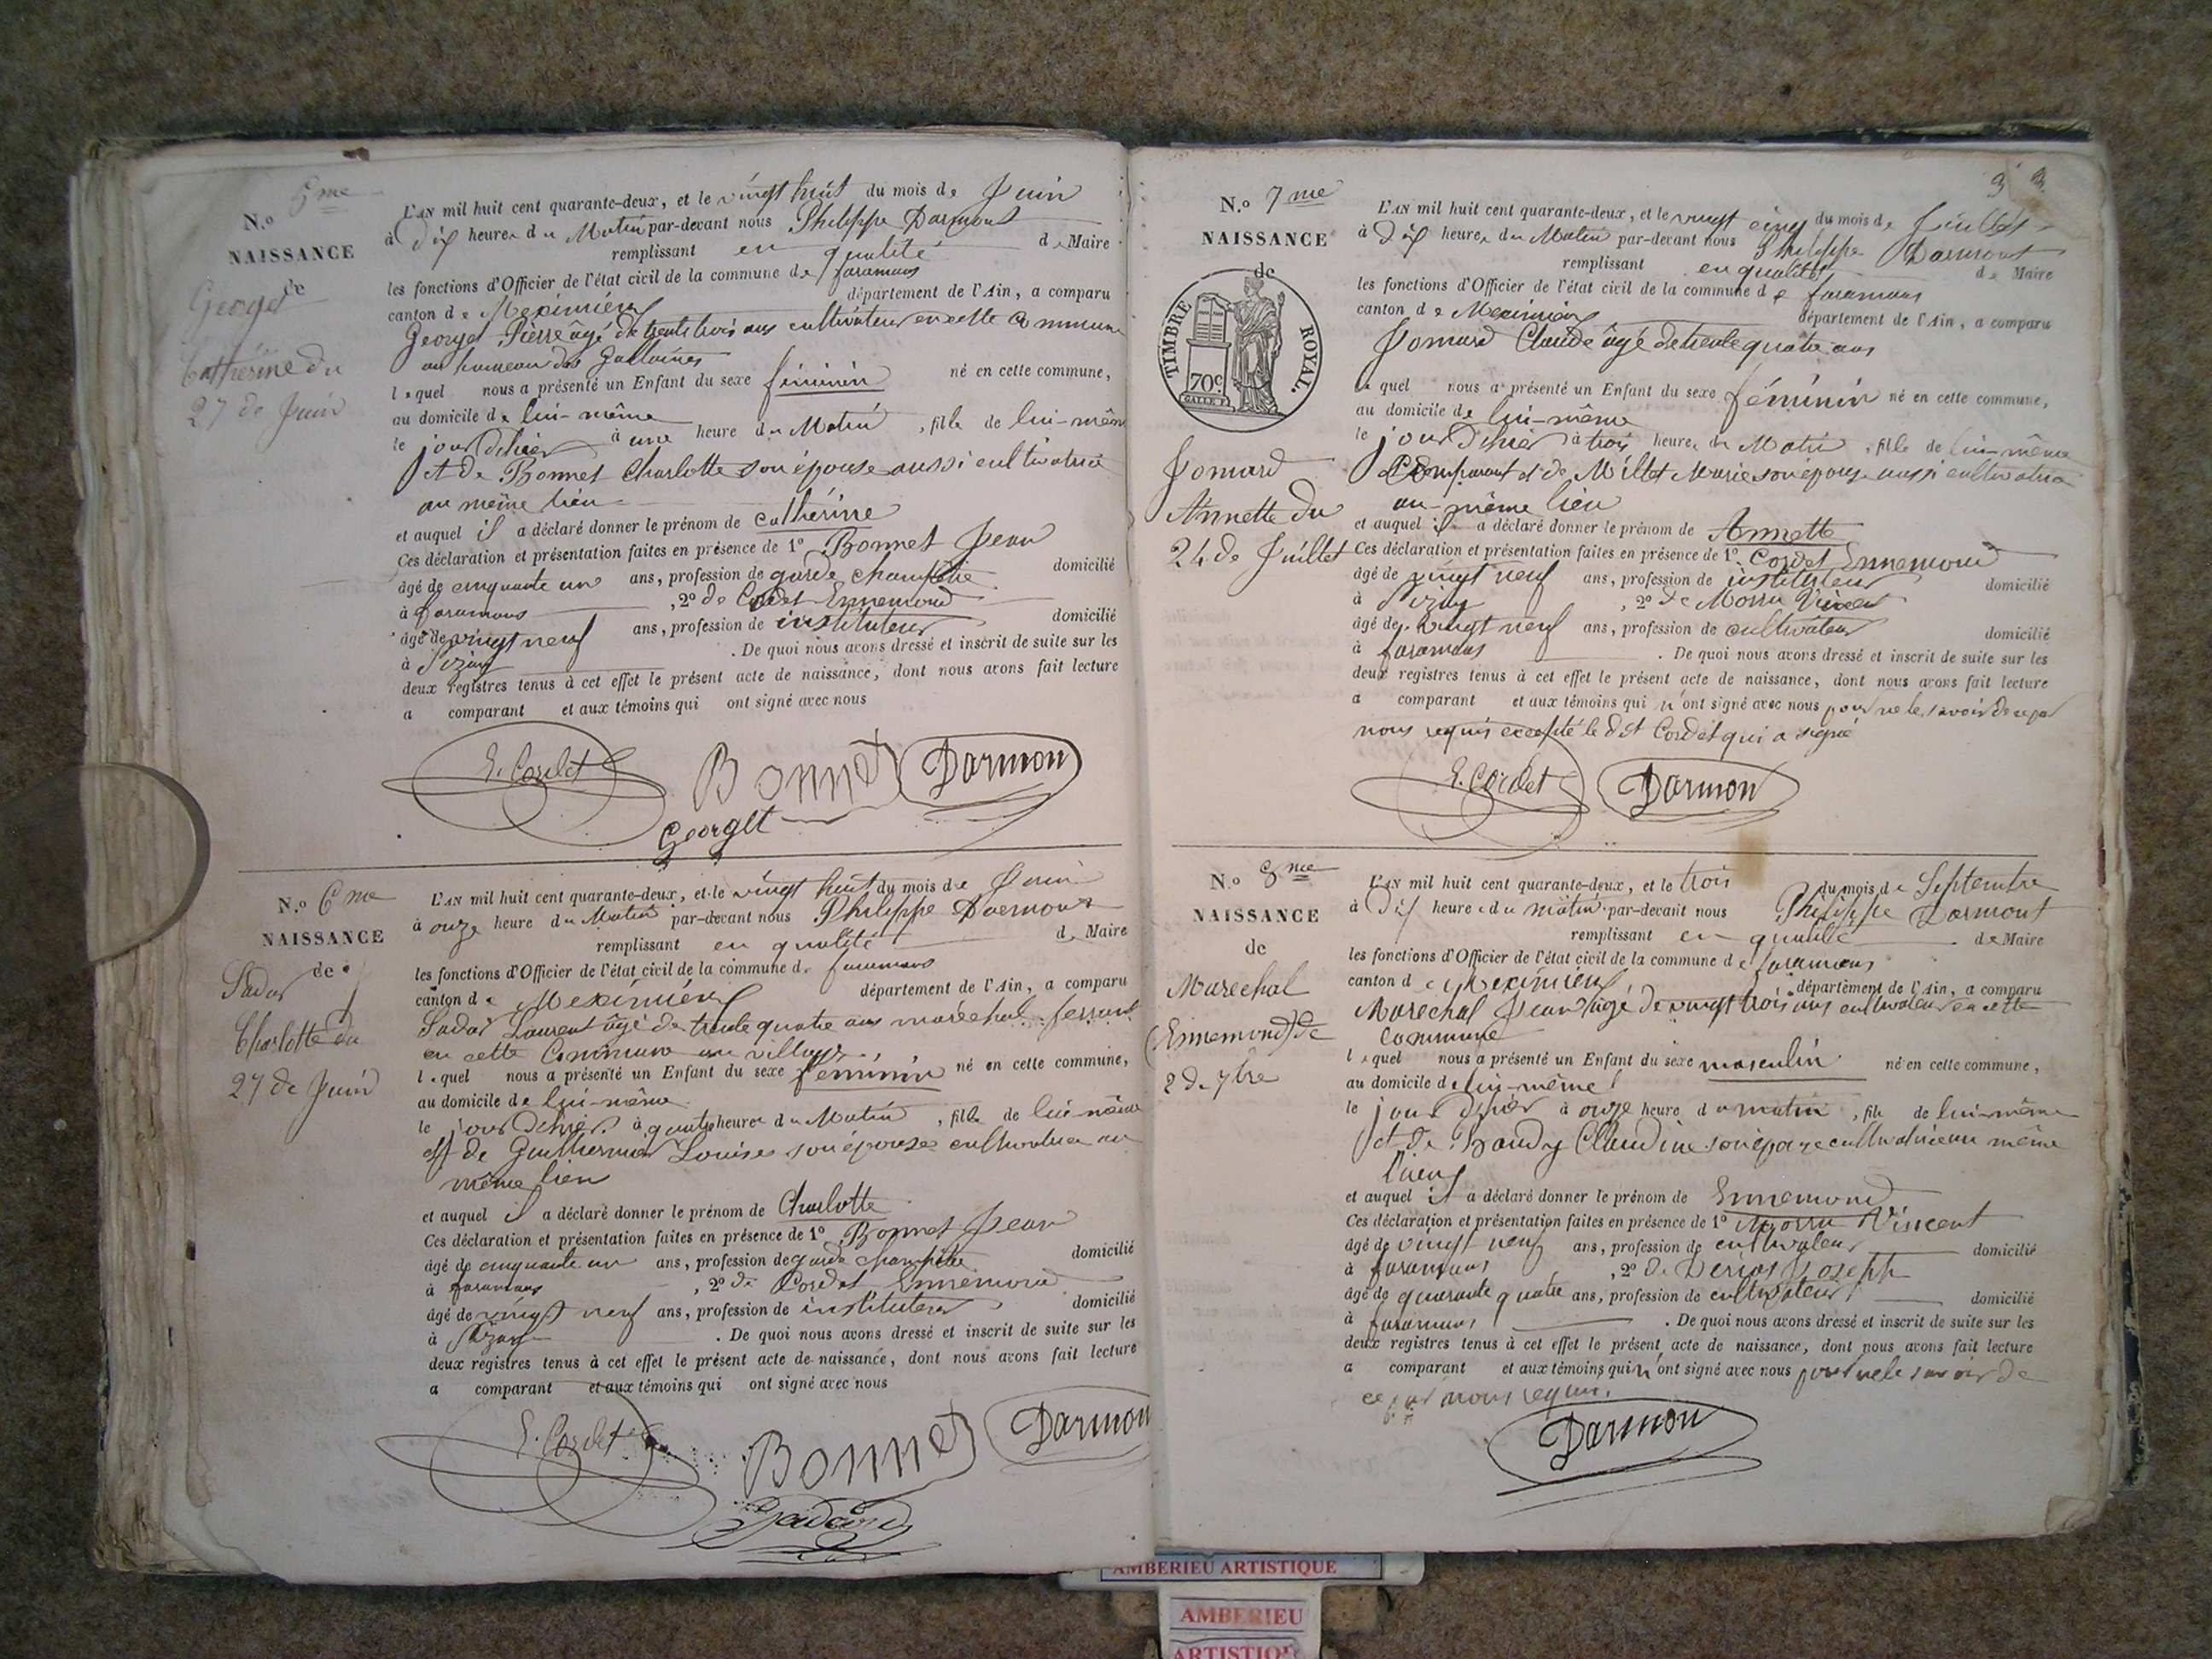 N.o 5me
NAISSANCE
de
Georget
Catherine du
27 de Juin
L'AN mil huit cent quarante-deux, et le vingt huit du mois de Juin
à dix heures du Matin par-devant nous Philippe Darmont
remplissant en qualité de Maire
les fonctions d'Officier de l'état civil de la commune de faramans
canton de Meximieux département de l'Ain, a comparu
Georget Pierre âgé de trente trois ans cultivateur en cette Commune
au hameau des
lequel nous a présenté un Enfant du sexe féminin né en cette commune,
au domicile de lui-même
le jour d'hier à une heure du Matin, fille de lui-même
et de Bonnet Charlotte son épouse aussi cultivatrice
au même lieu
et auquel il a déclaré donner le prénom de Cathérine
Ces déclaration et présentation faites en présence de 1º Bonnet Jean
âgé de cinquante un ans, profession de garde champêtre domicilié
à faramans, 2º de Cordet Ennemond
âgé de vingt neuf ans, profession de instituteur domicilié
à Pizay. De quoi nous avons dressé et inscrit de suite sur les
deux registres tenus à cet effet le présent acte de naissance, dont nous avons fait lecture
a comparant et aux témoins qui ont signé avec nous
E. Cordet Bonnet Darmon
Georget
N.o 6me
NAISSANCE
de
Charlotte du
27 de Juin
L'AN mil huit cent quarante-deux, et le vingt huit du mois de Juin
à onze heure du Matin par-devant nous Philippe Darmont
remplissant en qualité de Maire
les fonctions d'Officier de l'état civil de la commune de faramans
canton de Meximieux département de l'Ain, a comparu
Laurent âgé de trente quatre ans maréchal ferrant
en cette Commune au village
lequel nous a présenté un Enfant du sexe féminin né en cette commune,
au domicile de lui-même
le jour d'hier à quatre heures du Matin, fille de lui-même
et de Louise son épouse cultivatrice au
même lieu
et auquel il a déclaré donner le prénom de Charlotte
Ces déclaration et présentation faites en présence de 1º Bonnet Jean
âgé de cinquante un ans, profession de garde champêtre domicilié
à faramans, 2º de Cordet Ennemond
âgé de vingt neuf ans, profession de instituteur domicilié
à Pizay. De quoi nous avons dressé et inscrit de suite sur les
deux registres tenus à cet effet le présent acte de naissance, dont nous avons fait lecture
a comparant et aux témoins qui ont signé avec nous
E. Cordet Bonnet Darmon
3
N.o 7me
NAISSANCE
de
TIMBRE ROYAL.
70c.
Jomard
Annette du
24 de Juillet
L'AN mil huit cent quarante-deux, et le vingt cinq du mois de Juillet
à dix heures du Matin par-devant nous Philippe Darmont
remplissant en qualité de Maire
les fonctions d'Officier de l'état civil de la commune de faramans
canton de Meximieux département de l'Ain, a comparu
Jomard Claude âgé de trente quatre ans
lequel nous a présenté un Enfant du sexe féminin né en cette commune,
au domicile de lui-même
le jour d'hier à trois heures du Matin, fille de lui-même
Comparant et de Millet Marie son épouse aussi cultivatrice
au même lieu
et auquel il a déclaré donner le prénom de Annette
Ces déclaration et présentation faites en présence de 1º Cordet Ennemond
âgé de vingt neuf ans, profession de instituteur domicilié
à Pizay, 2º de Morru Vincent
âgé de vingt neuf ans, profession de cultivateur domicilié
à faramans. De quoi nous avons dressé et inscrit de suite sur les
deux registres tenus à cet effet le présent acte de naissance, dont nous avons fait lecture
a comparant et aux témoins qui n'ont signé avec nous pour ne le savoir de ce par
nous requis excepté le dit Cordet qui a signé
E. Cordet Darmon
N.o 8me
NAISSANCE
de
Marechal
(Ennemond) de
2 de 7bre
L'AN mil huit cent quarante-deux, et le trois du mois de Septembre
à dix heures du matin par-devant nous Philippe Darmont
remplissant en qualité de Maire
les fonctions d'Officier de l'état civil de la commune de faramans
canton de Meximieux département de l'Ain, a comparu
Marechal Jean âgé de vingt trois ans cultivateur en cette
commune
lequel nous a présenté un Enfant du sexe masculin né en cette commune,
au domicile de lui-même
le jour d'hier à onze heure du matin, fils de lui-même
et de Baudy Claudine son épouse cultivatrice au même
lieu
et auquel il a déclaré donner le prénom de Ennemond
Ces déclaration et présentation faites en présence de 1º Morru Vincent
âgé de vingt neuf ans, profession de cultivateur domicilié
à faramans, 2º de Joseph
âgé de quarante quatre ans, profession de cultivateur domicilié
à faramans. De quoi nous avons dressé et inscrit de suite sur les
deux registres tenus à cet effet le présent acte de naissance, dont nous avons fait lecture
a comparant et aux témoins qui n'ont signé avec nous pour ne le savoir de
ce par nous requis.
Darmon
AMBERIEU ARTISTIQUE
AMBERIEU
ARTISTIQUE